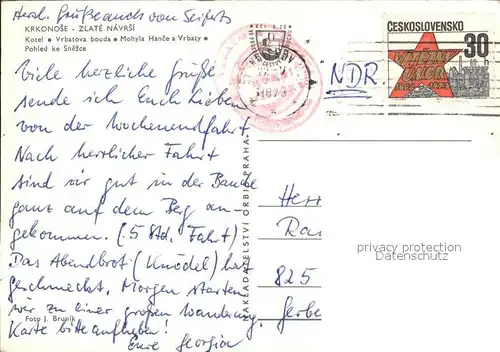 Herzl. Grüße auch von Seiferts
KRKONOŠE - ZLATÉ NÁVRŠÍ
Kotel • Vrbatova bouda • Mohyla Hanče a Vrbaty •
Pohled ke Sněžce
Viele herzliche Grüße
sende ich Euch Lieben
von der Wochenendfahrt
Nach herrlicher Fahrt
sind wir gut in der Baude
ganz auf dem Berg an-
gekommen. (5 Std. Fahrt)
Das Abendbrot (Knödel) hat
geschmeckt. Morgen starten
wir zu einer großen Wanderung.
Karte bitte aufheben!
Eure Georgia
Foto J. Brunik
NAKLADATELSTVÍ ORBIS, PRAHA
ČESKOSLOVENSKO
30h
VÍTĚZNÝ
ÚNOR
NDR
Herr
825
privacy protection
Datenschutz